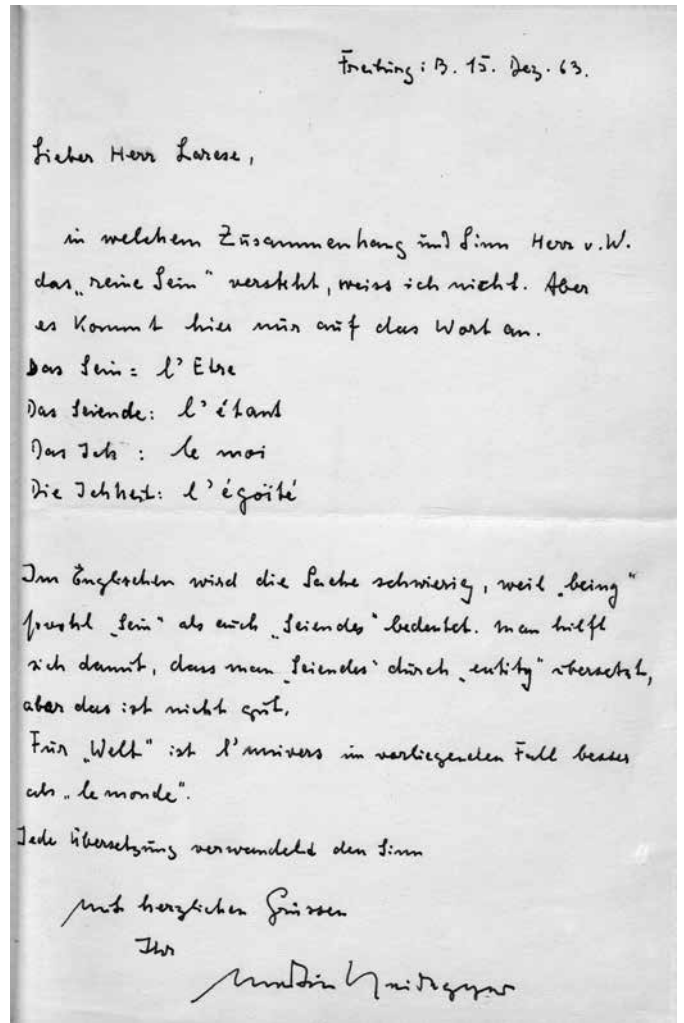 Freiburg i B. 15. Dez. 63.
Lieber Herr Larese,
in welchem Zusammenhang und Sinn Herr v. W.
das „reine Sein" versteht, weiss ich nicht. Aber
es kommt hier nur auf das Wort an.
Das Sein: l'Etre
Das Seiende: l'étant
Das Ich : le moi
Die Ichheit: l'égoïté
Im Englischen wird die Sache schwierig, weil „being"
sowohl „Sein" als auch „Seiendes" bedeutet. Man hilft
sich damit, dass man „Seiendes" durch „entity" übersetzt,
aber das ist nicht gut.
Für „Welt" ist l'univers im vorliegenden Fall besser
als „le monde".
Jede Übersetzung verwandelt den Sinn
mit herzlichen Grüssen
Ihr
Martin Heidegger